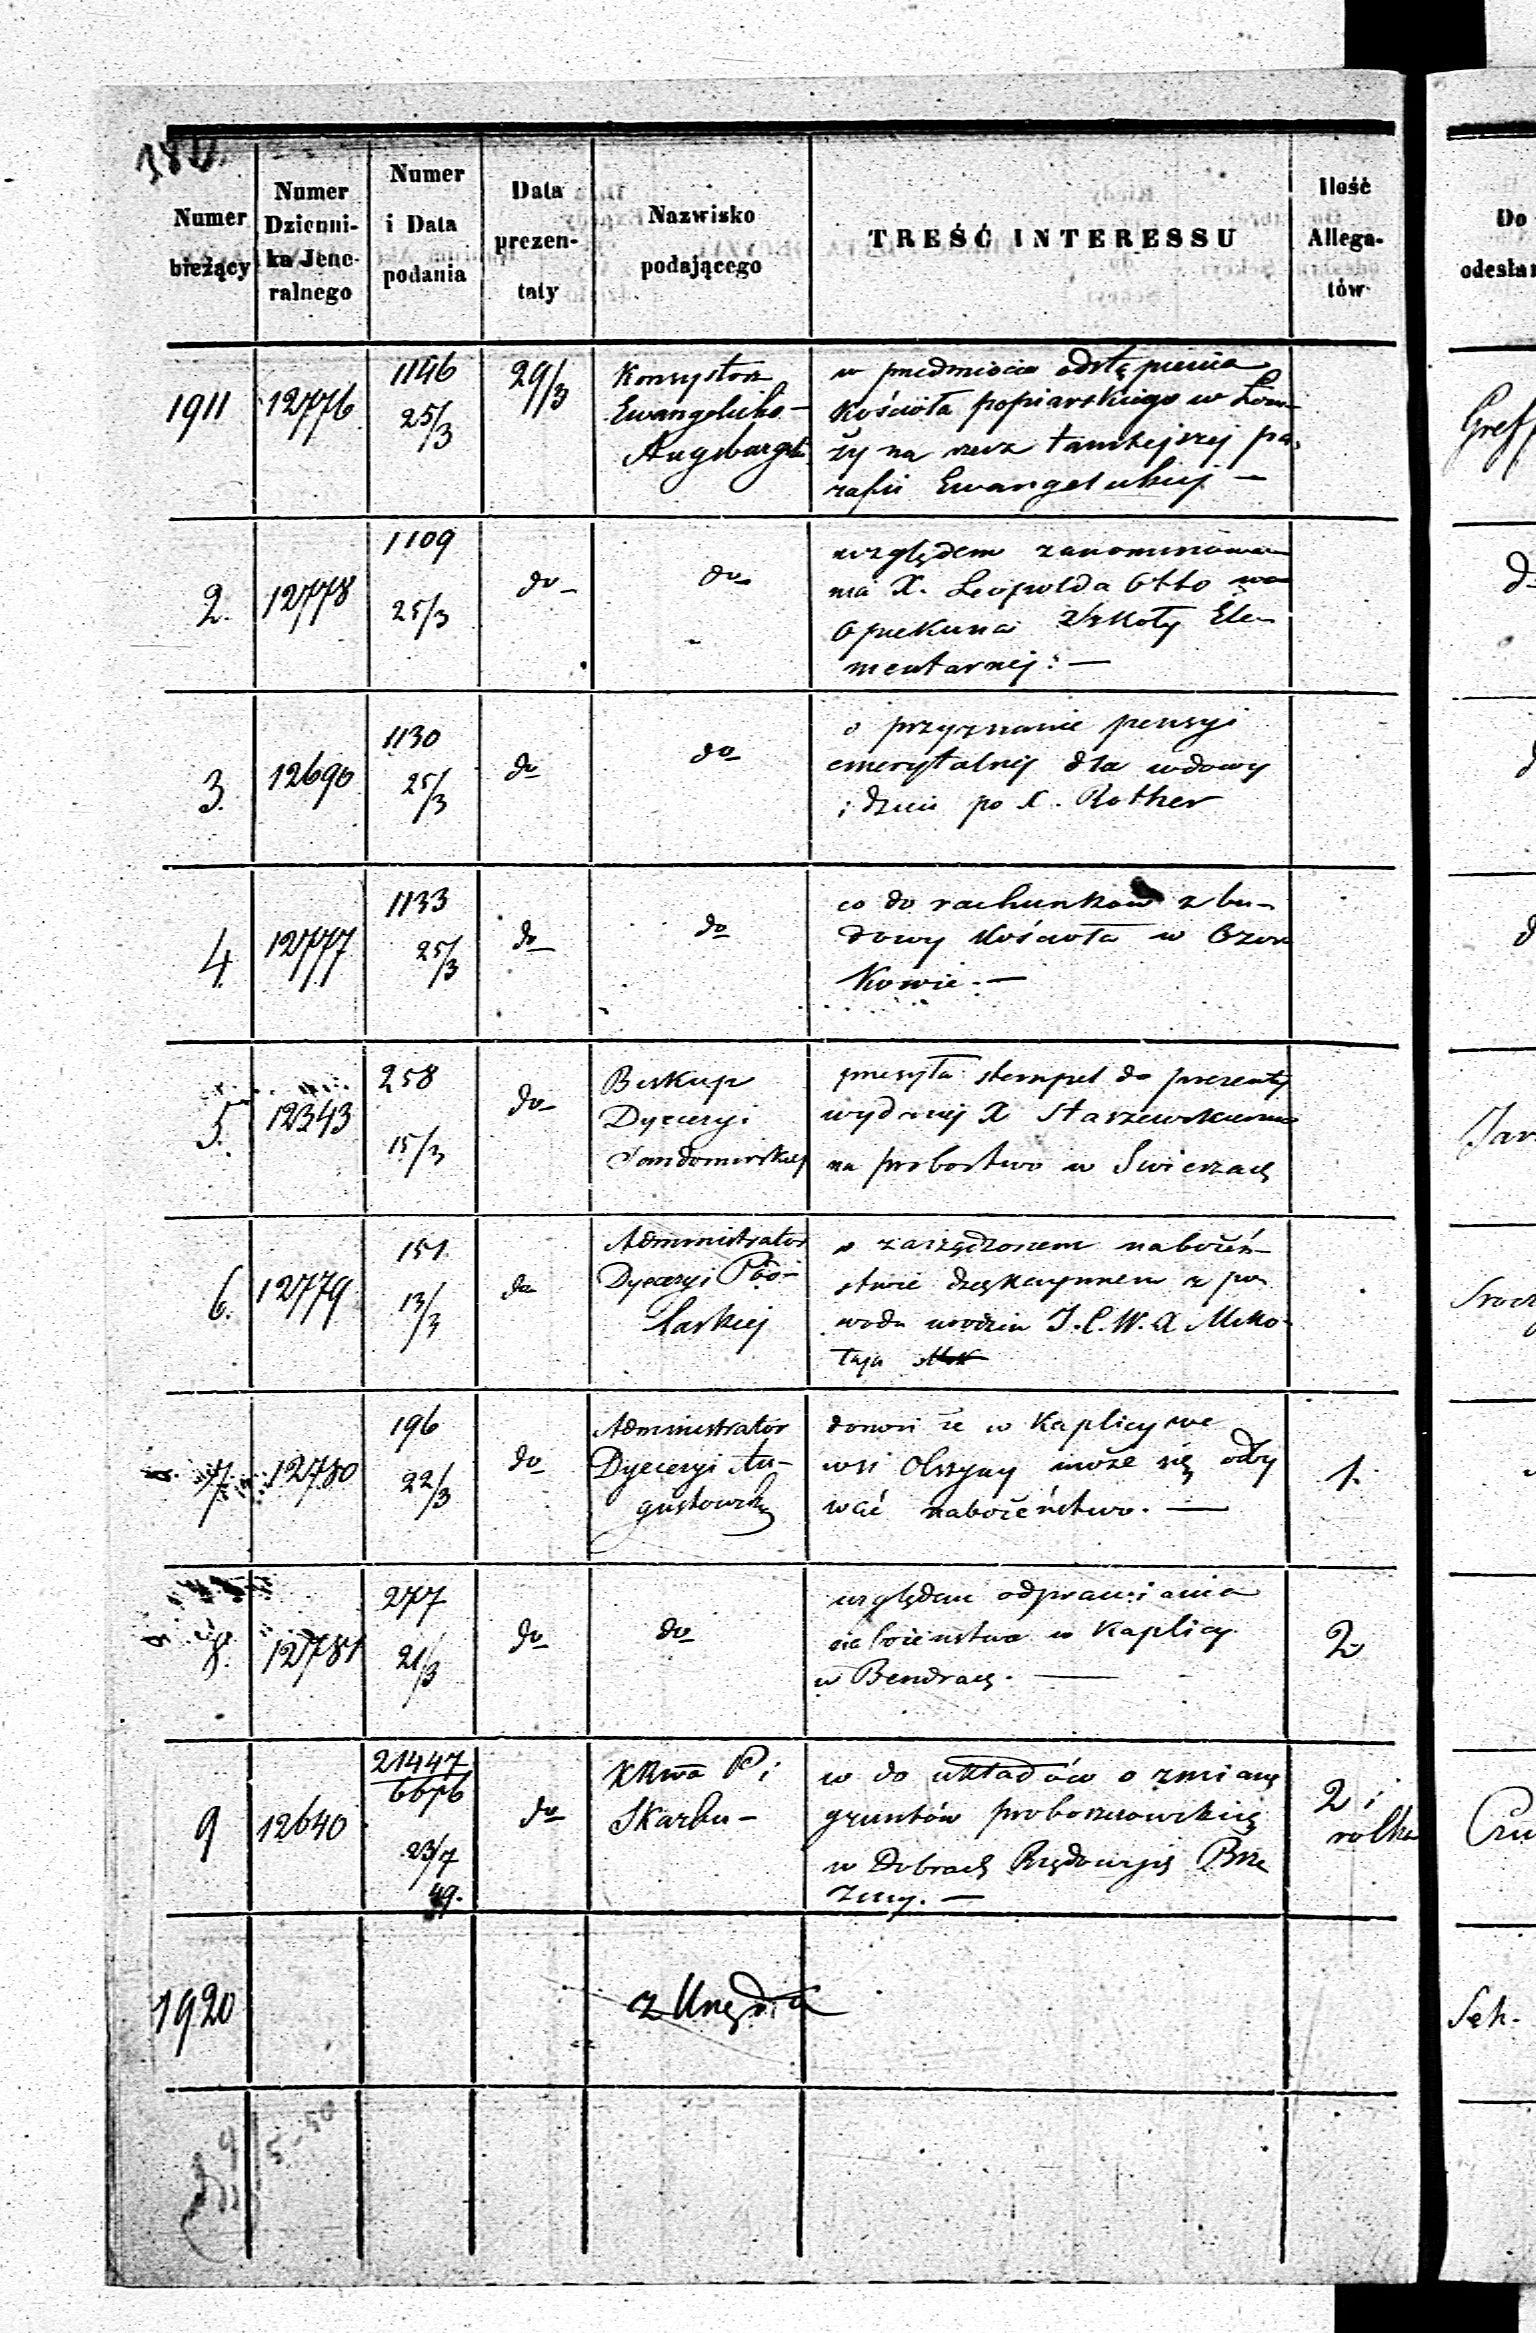 380.
Numer bieżący
Numer Dzienni-ka Jene-ralnego
Numer i Data podania
Data prezen-taty
Nazwisko podającego
TREŚĆ INTERESSU
Ilość Allega-tów
Do
odesłan
1911 12776 1146 25/3 29/3
Konsystorz
Ewangelicko-
Augsburgski
w przedmiocie odstąpienia
Kościoła popiarskiego w Łom-
ży na rzecz tamtejszej pa-
rafii Ewangelickiej —
2. 12778 1109 25/3 do do
względem zanominowa-
nia X. Leopolda Otto na
Opiekuna Szkoły Ele-
mentarnej. —
3. 12690 1130 25/3 do do
o przyznanie pensyi
emerytalnej dla wdowy
i dzieci po X. Rother
4. 12777 1133 25/3 do do
co do rachunków z bu-
dowy Kościoła w Ozor
Kowie. —
5. 12343 258 15/3 do
Biskup
Dyecezyi
Sandomirskiej
przesyła stempel do prezenty
wydanej X Starzewskiemu
na probostwo w Swierzach
6. 12779 151 13/3 do
Administrator
Dyecezyi Pod-
laskiej
o zarządzonem nabożeń-
stwie dziękczynnem z po
wodu urodzin J.C.W.X Miko-
łaja
7. 12780 196 22/3 do
Administrator
Dyecezyi Au-
gustowskiej
donosi że w Kaplicy we
wsi Olszyny może się odby
wać nabożeństwo. —
1.
8. 12781 277 21/3 do do
względem odprawiania
nabożeństwa w Kaplicy
w Bendrach. —
2
9 12640 21447/6676 23/7 49. do
KRwa P i
Skarbu -
w do układów o zmianę
gruntów proboszczowskich
w Dobrach Rządowych Brze
ziny. —
2 i
rolka
1920
z Urzędu
Sek.